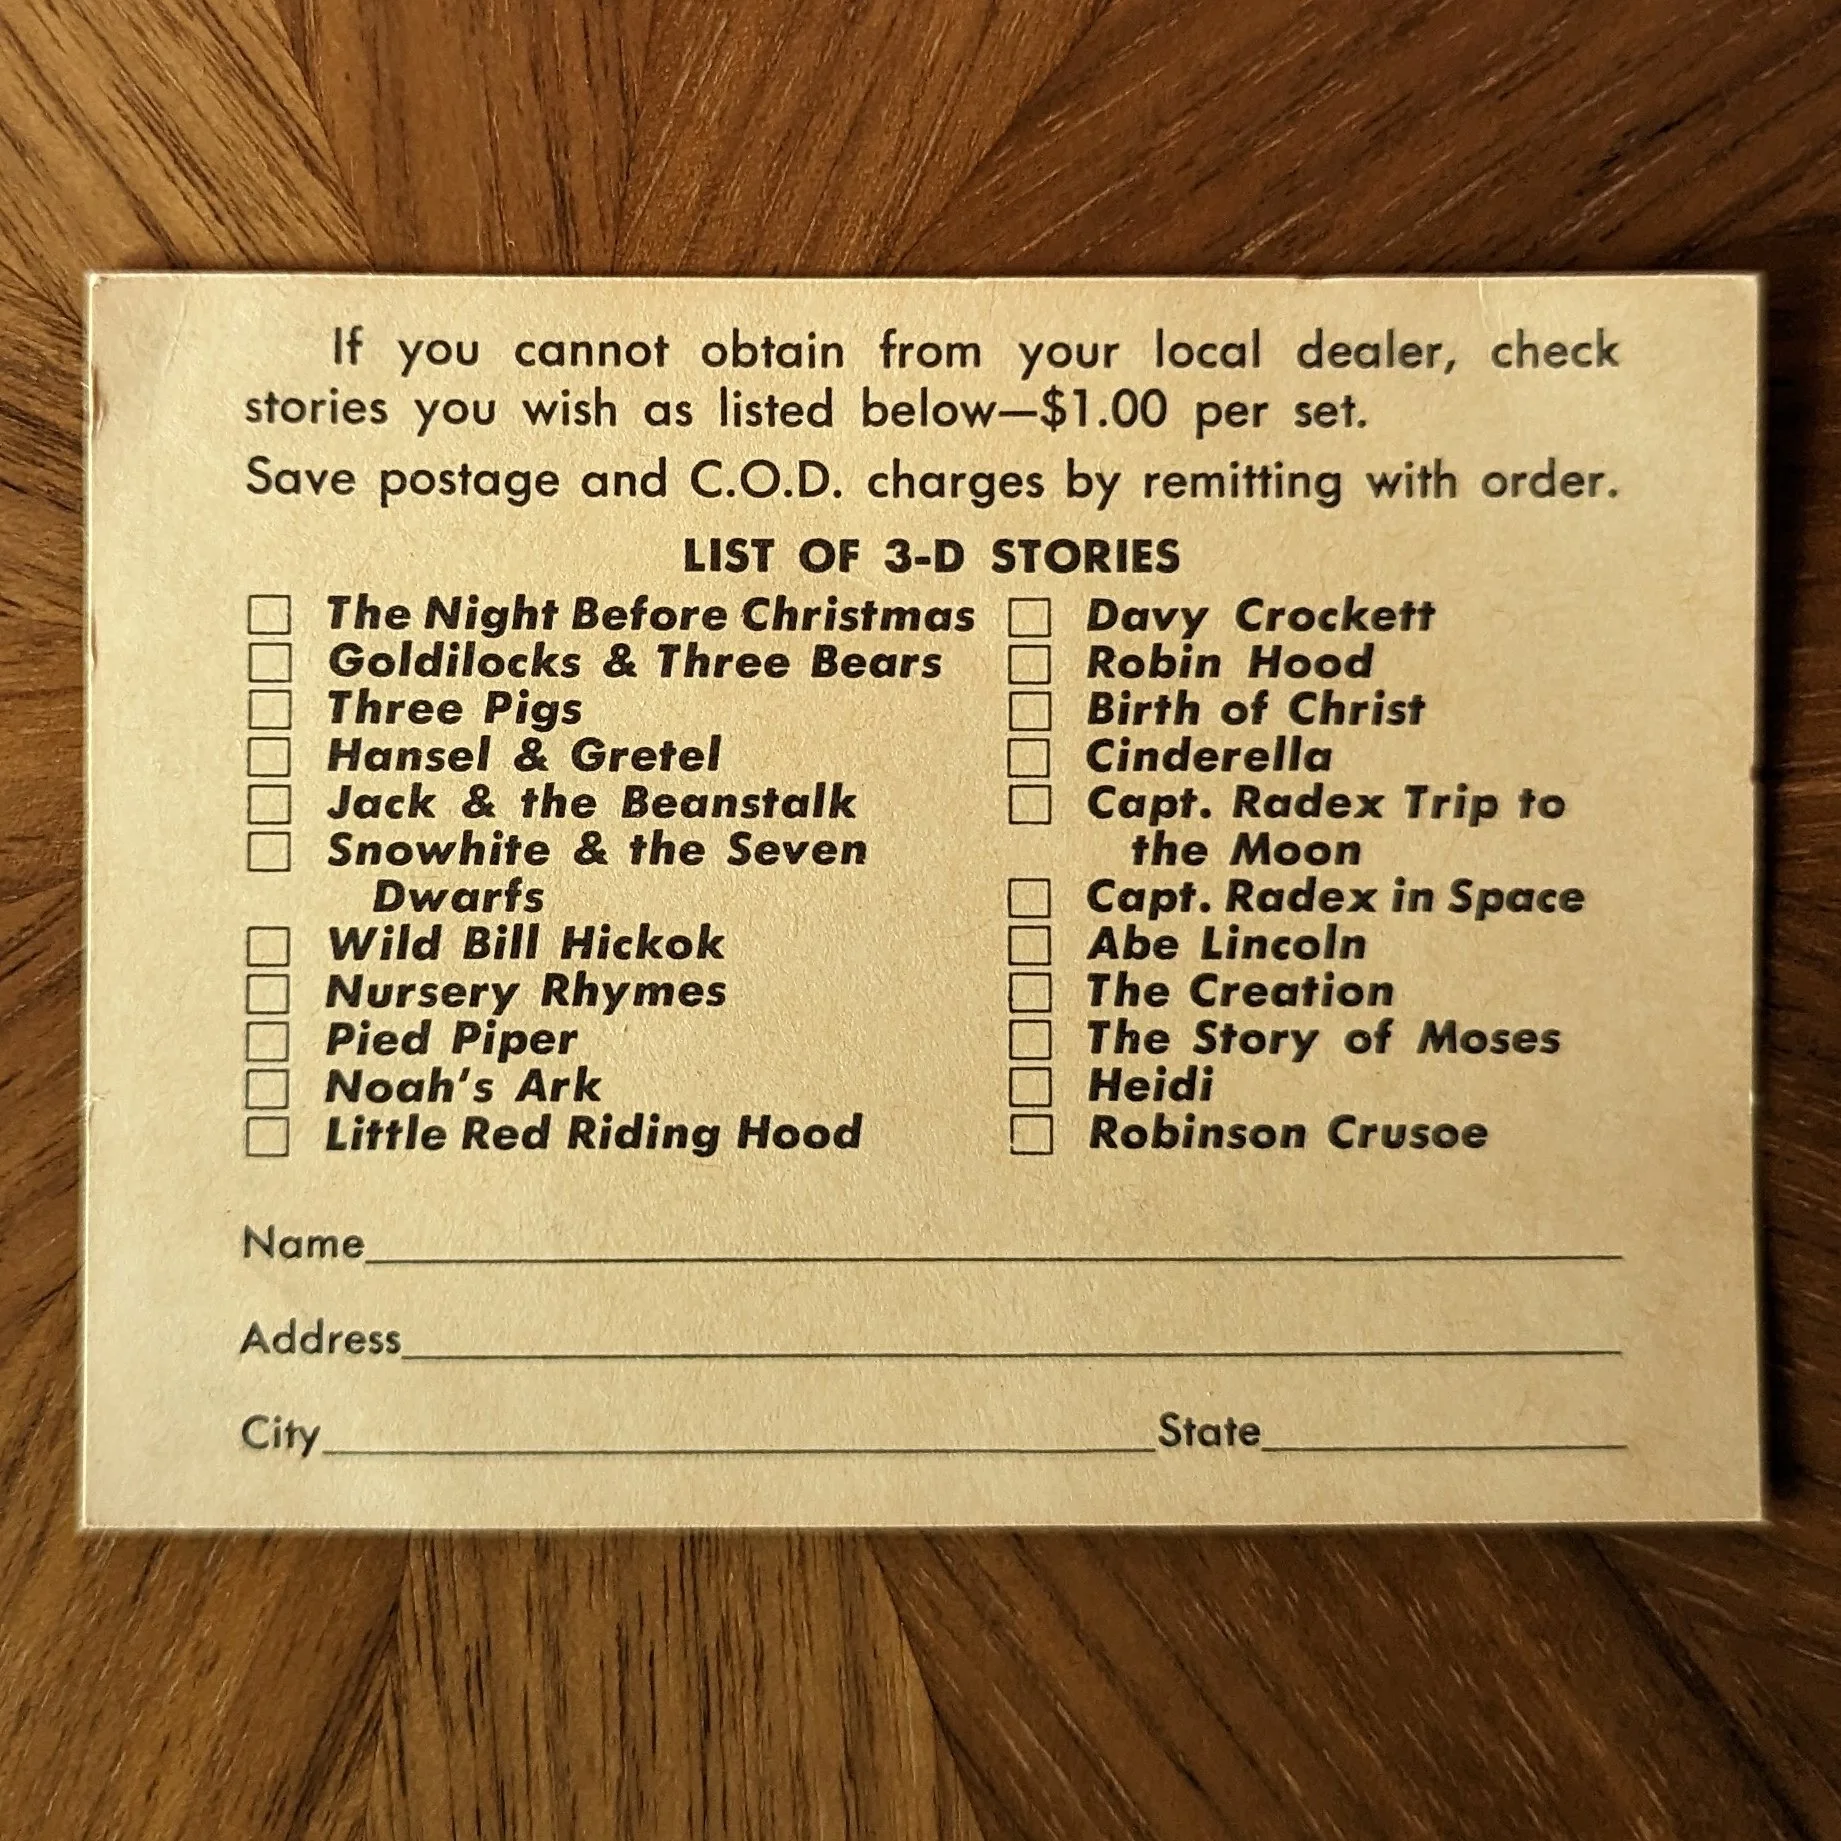 If you cannot obtain from your local dealer, check
stories you wish as listed below—$1.00 per set.
Save postage and C.O.D. charges by remitting with order.
LIST OF 3-D STORIES
The Night Before Christmas
Goldilocks & Three Bears
Three Pigs
Hansel & Gretel
Jack & the Beanstalk
Snowhite & the Seven
Dwarfs
Wild Bill Hickok
Nursery Rhymes
Pied Piper
Noah's Ark
Little Red Riding Hood
Davy Crockett
Robin Hood
Birth of Christ
Cinderella
Capt. Radex Trip to
the Moon
Capt. Radex in Space
Abe Lincoln
The Creation
The Story of Moses
Heidi
Robinson Crusoe
Name
Address
City State